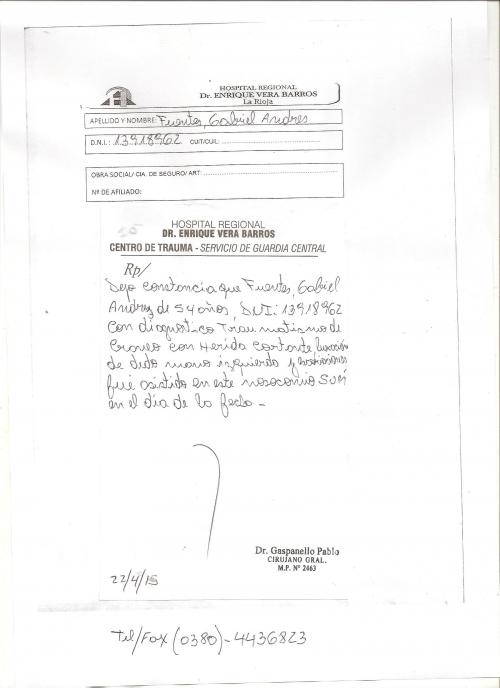 HOSPITAL REGIONAL
Dr. ENRIQUE VERA BARROS
La Rioja
APELLIDO Y NOMBRE: Fuentes, Gabriel Andres
D.N.I.: 13918962 CUIT/CUIL:
OBRA SOCIAL/ CIA. DE SEGURO/ ART:
Nº DE AFILIADO:
HOSPITAL REGIONAL
DR. ENRIQUE VERA BARROS
CENTRO DE TRAUMA - SERVICIO DE GUARDIA CENTRAL
Rp/
Dejo constancia que Fuentes, Gabriel
Andres de 54 años, DNI: 13918962
Con diagnostico Traumatismo de
Craneo con Herida Cortante luxación
de dedo mano izquierda y escoriaciones
fué asistido en este nosocomio
en el día de la fecha -
Dr. Gaspanello Pablo
CIRUJANO GRAL.
M.P. Nº 2463
22/4/15
Tel/Fax (0380)-4436823